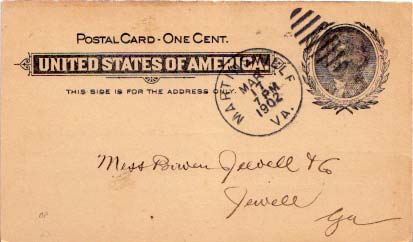 POSTAL CARD - ONE CENT.
UNITED STATES OF AMERICA.
THIS SIDE IS FOR THE ADDRESS ONLY.
MARTINSVILLE
MAR
7
7 PM
1902
VA.
Mess Bowen Jewell & Co
Jewell
Ga